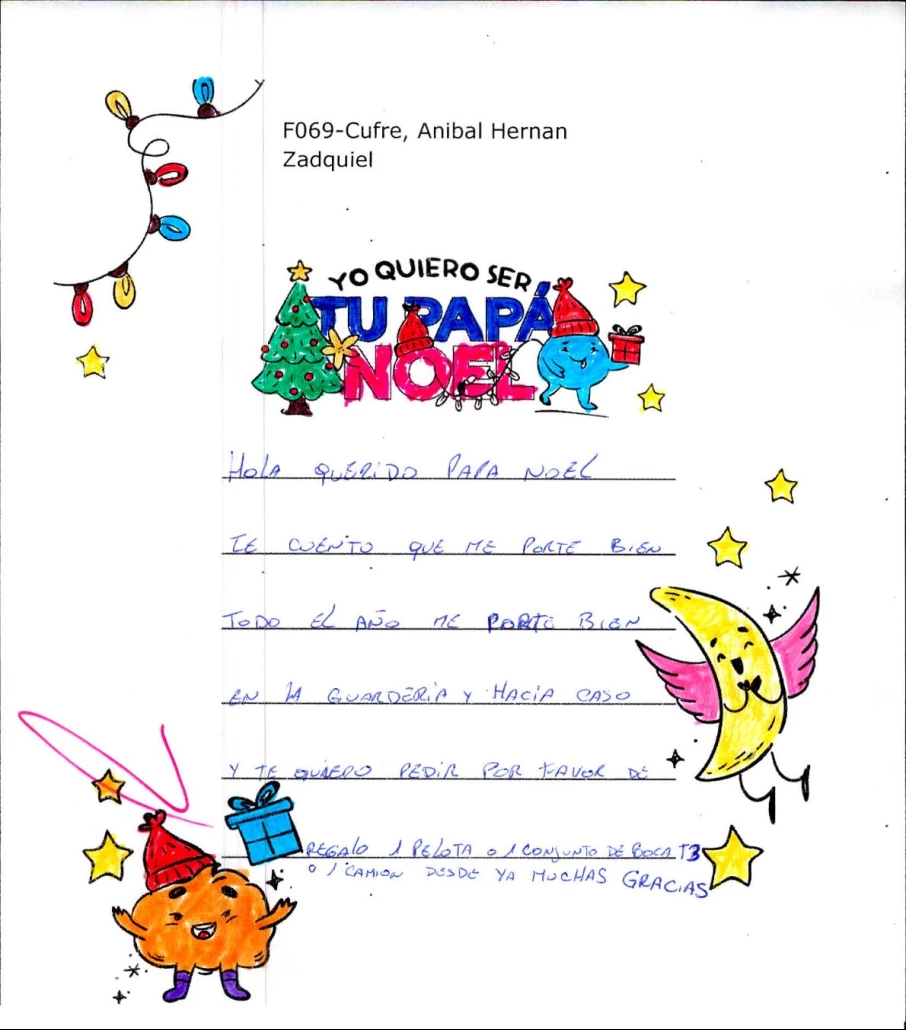 F069-Cufre, Anibal Hernan
Zadquiel
YO QUIERO SER
TU PAPÁ
NOEL
HOLA QUERIDO PAPA NOEL
TE CUENTO QUE ME PORTE BIEN
TODO EL AÑO ME PORTE BIEN
EN LA GUARDERIA Y HACIA CASO
Y TE QUIERO PEDIR POR FAVOR DE
REGALO 1 PELOTA O 1 CONJUNTO DE BOCA T3
O 1 CAMION DESDE YA MUCHAS GRACIAS